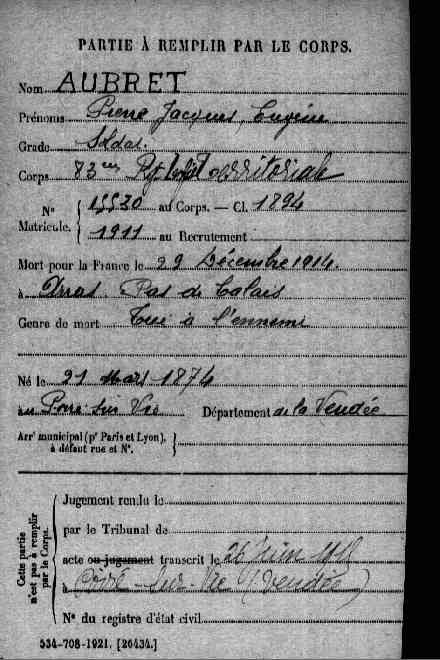 PARTIE À REMPLIR PAR LE CORPS.
Nom AUBRET
Prénoms Pierre Jacques Eugène
Grade Soldat.
Corps 83me Rgt Inft territoriale
N° 15530 au Corps. — Cl. 1894
Matricule. 1911 au Recrutement
Mort pour la France le 29 Décembre 1914.
à Arras. Pas de Calais
Genre de mort Tué à l'ennemi
Né le 21 Mars 1874
au Poiré sur Vie Département de la Vendée
Arrt municipal (pr Paris et Lyon),
à défaut rue et N°.
Cette partie n'est pas à remplir par le Corps.
Jugement rendu le
par le Tribunal de
acte ou jugement transcrit le 26 Juin 1915
à Poiré-sur-Vie (Vendée)
N° du registre d'état civil
534-708-1921. [26434.]